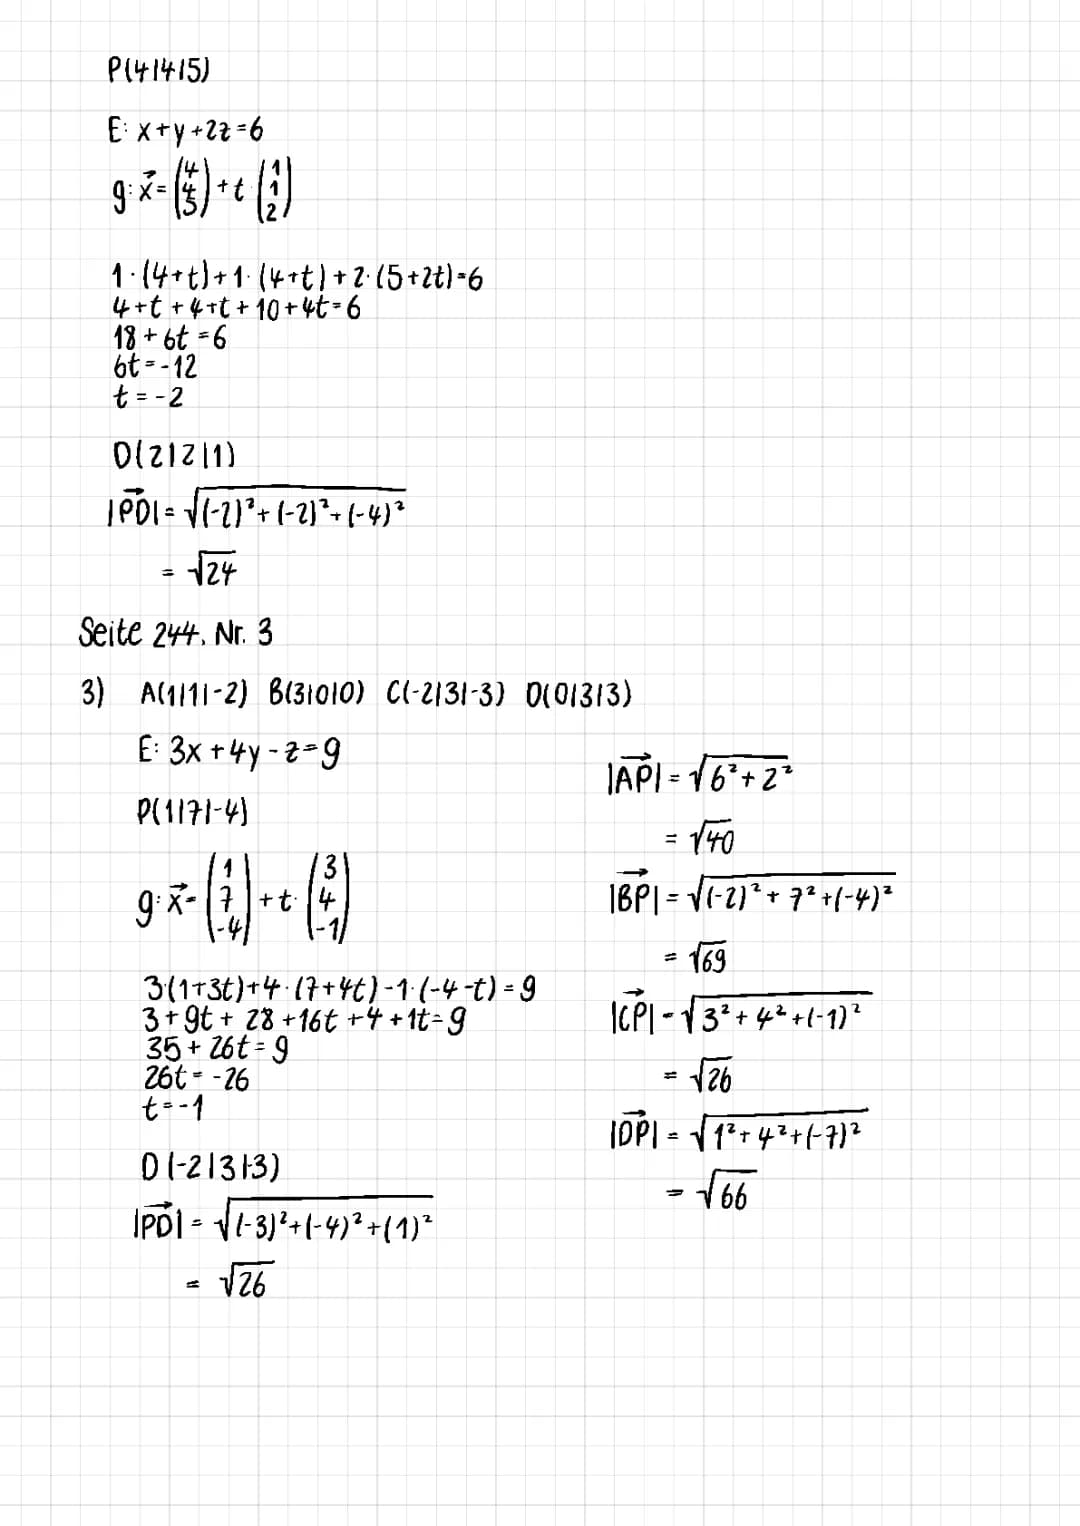 P(4|4|5)
E: x+y+2z=6
g: x⃗=(4 4 5)+t·(1 1 2)
1·(4+t)+1·(4+t)+2·(5+2t)=6
4+t+4+t+10+4t=6
18+6t=6
6t=-12
t=-2
D(2|2|1)
|PD⃗|=√((-2)²+(-2)²+(-4)²)
=√24
Seite 244, Nr. 3
3) A(1|1|-2) B(3|0|0) C(-2|3|-3) D(0|3|3)
E: 3x+4y-z=9
P(1|7|-4)
g: x⃗=(1 7 -4)+t·(3 4 -1)
3·(1+3t)+4·(7+4t)-1·(-4-t)=9
3+9t+28+16t+4+1t=9
35+26t=9
26t=-26
t=-1
D(-2|3|-3)
|PD⃗|=√((-3)²+(-4)²+(1)²)
=√26
|AP⃗|=√(6²+2²)
=√40
|BP⃗|=√((-2)²+7²+(-4)²)
=√69
|CP⃗|=√(3²+4²+(-1)²)
=√26
|DP⃗|=√(1²+4²+(-7)²)
=√66